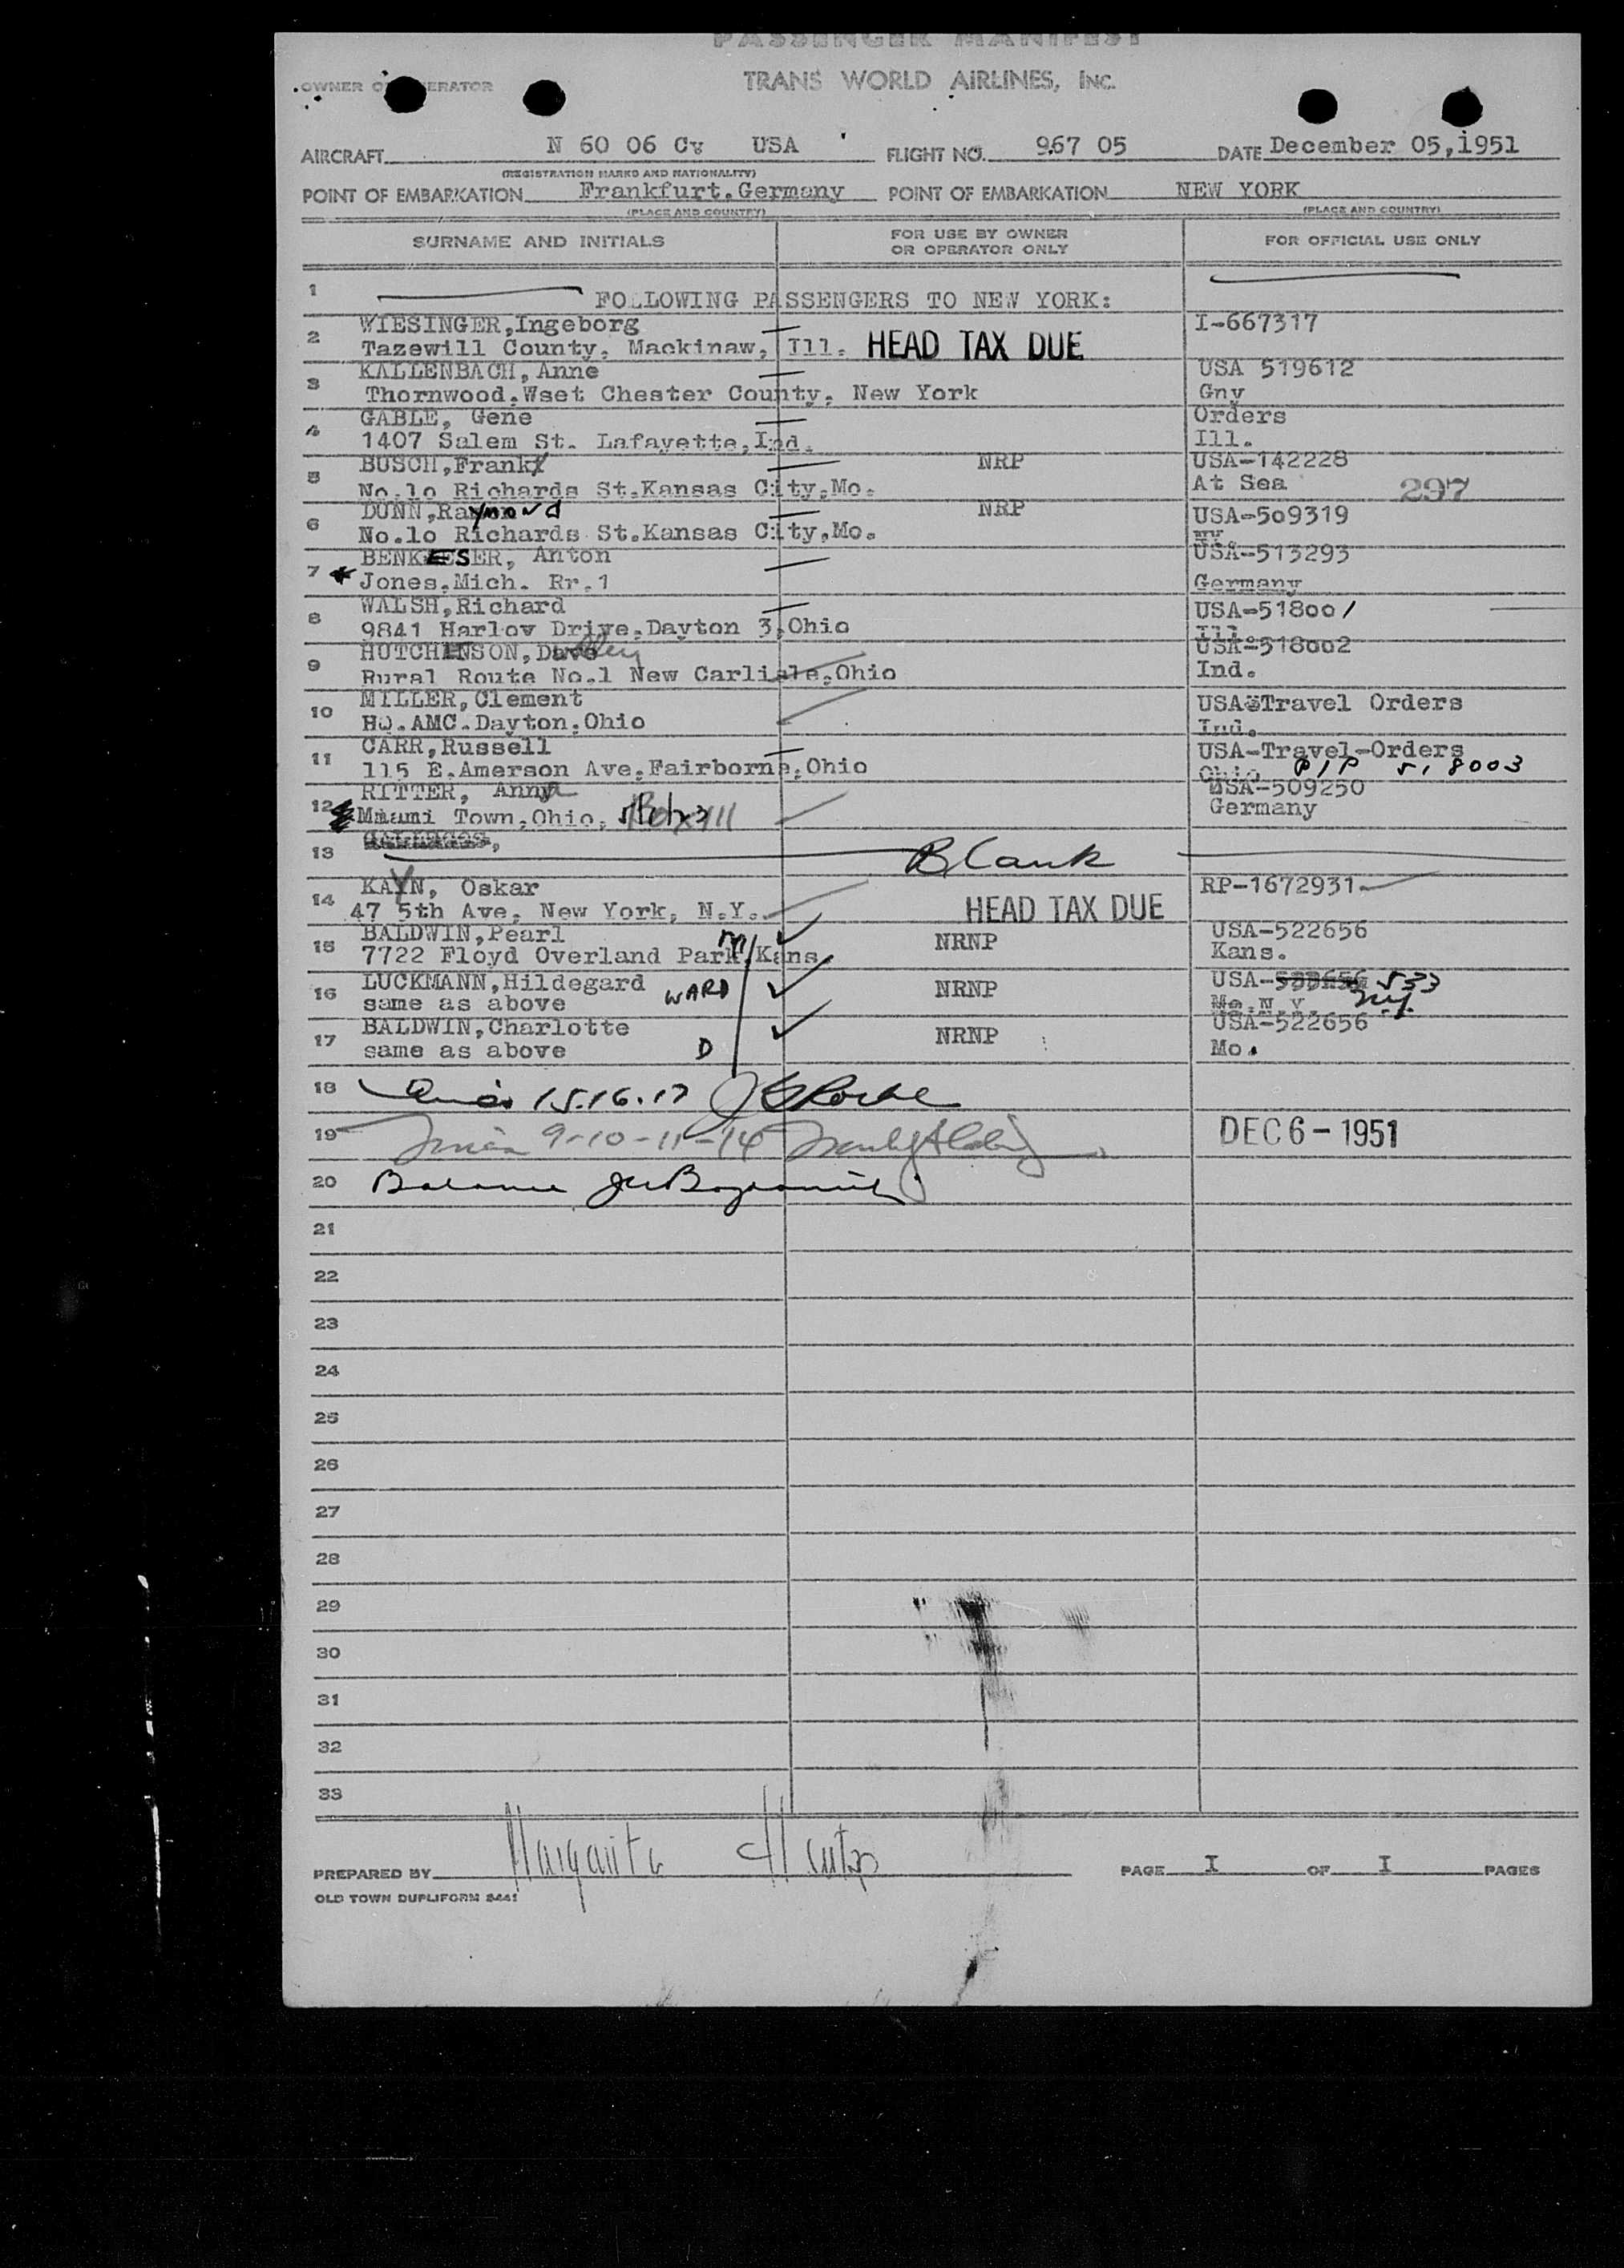 PASSENGER MANIFEST
TRANS WORLD AIRLINES, INC.
OWNER O ERATOR
AIRCRAFT N 60 06 Cv USA FLIGHT NO. 967 05 DATE December 05,1951
(REGISTRATION MARKS AND NATIONALITY)
POINT OF EMBARKATION Frankfurt.Germany POINT OF EMBARKATION NEW YORK
(PLACE AND COUNTRY) (PLACE AND COUNTRY)
SURNAME AND INITIALS FOR USE BY OWNER OR OPERATOR ONLY FOR OFFICIAL USE ONLY
1 FOLLOWING PASSENGERS TO NEW YORK:
2 WIESINGER,Ingeborg I-667317
Tazewill County, Mackinaw, Ill. HEAD TAX DUE
3 KALLENBACH,Anne USA 519612
Thornwood.Wset Chester County, New York Gny
4 GABLE, Gene Orders
1407 Salem St. Lafayette,Ind. Ill.
5 BUSCH,Frank NRP USA-142228
No.lo Richards St.Kansas City,Mo. At Sea 297
6 DUNN,Raymond NRP USA-509319
No.lo Richards St.Kansas City,Mo. NY.
7 BENKESER, Anton USA-513293
Jones,Mich. Rr.1 Germany
8 WALSH,Richard USA-518001
9841 Harlov Drive,Dayton 3,Ohio Ill.
9 HUTCHINSON, USA-518002
Rural Route No.1 New Carlisle,Ohio Ind.
10 MILLER,Clement USA-Travel Orders
HQ.AMC.Dayton,Ohio Ind.
11 CARR,Russell USA-Travel-Orders
115 E.Amerson Ave.Fairborne,Ohio Ohio P/P 518003
12 RITTER, Anna USA-509250
Miami Town,Ohio, Box 111 Germany
13 Blank
14 KAYN, Oskar RP-1672931
47 5th Ave, New York, N.Y. HEAD TAX DUE
15 BALDWIN,Pearl M NRNP USA-522656
7722 Floyd Overland Park,Kans. Kans.
16 LUCKMANN,Hildegard WARD NRNP USA-522656 533
same as above N.Y. NY.
17 BALDWIN,Charlotte NRNP USA-522656
same as above D Mo.
18 15.16.17
19 9-10-11-14 DEC 6-1951
20 Balance
21
22
23
24
25
26
27
28
29
30
31
32
33
PREPARED BY Margarita PAGE I OF I PAGES
OLD TOWN DUPLIFORM 8441